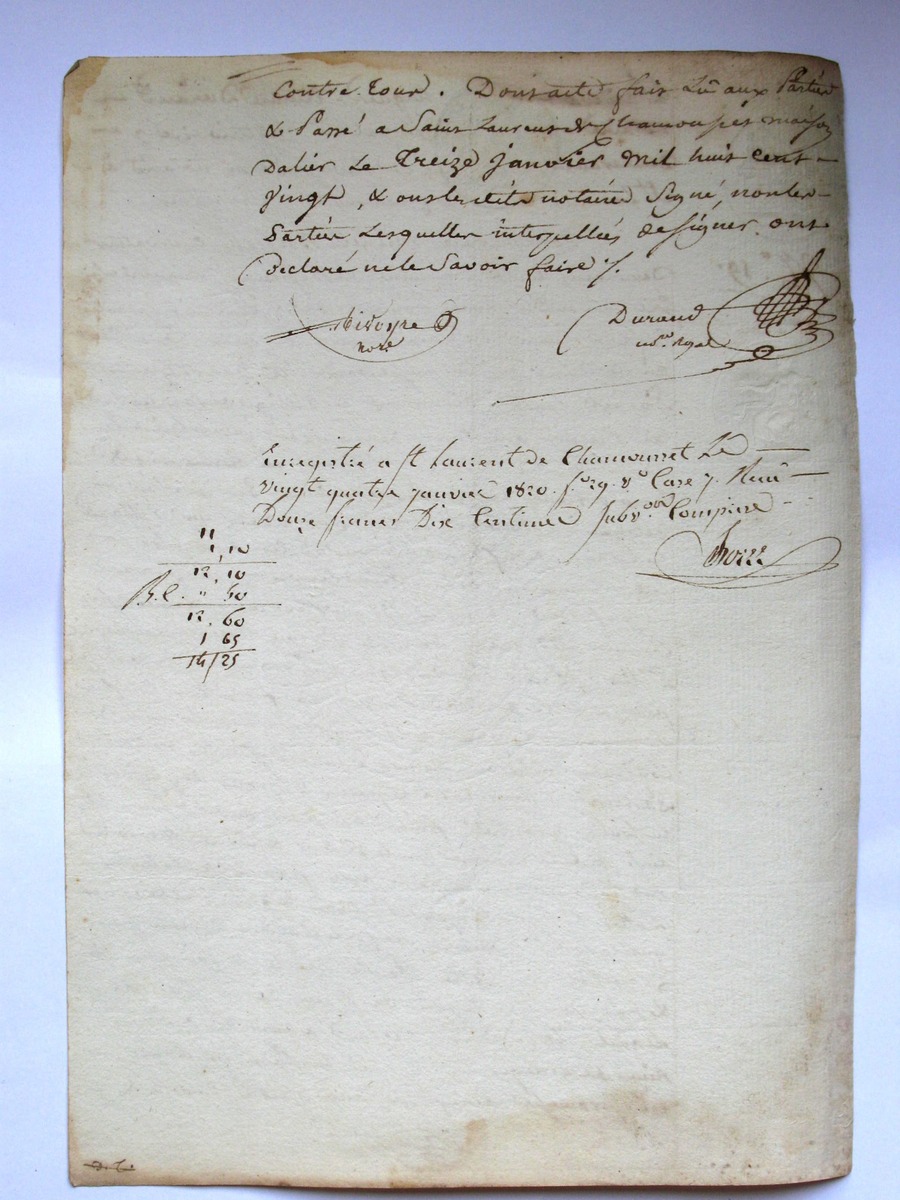 Contre tous. Dont acte fait Lû aux Parties
& Passé a Saint Laurent de Chamousset maison
Dalier Le Treize janvier mil huit cent
Vingt, & ons lesdits notaires Signé, non les
Parties Lesquelles interpellées de Signer. ont
Declaré ne le Savoir faire ./.
nore
Durand
Royal
Enregistré a St Laurent de Chamousset Le
vingt quatre janvier 1820. fo 29. vo Case 7. Reçu
Douze francs Dix Centimes Subvon Comprise
11
1,10
12,10
B.C. " 50
12,60
1 65
14/25
D. T.